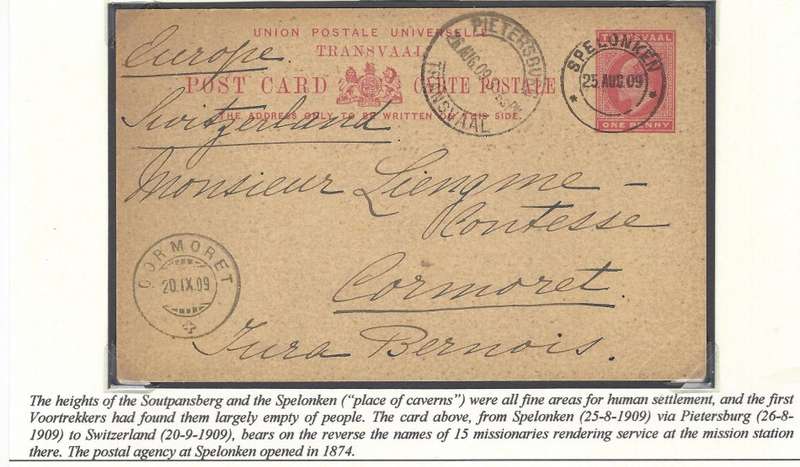 UNION POSTALE UNIVERSELLE
TRANSVAAL
POST CARD CARTE POSTALE
THE ADDRESS ONLY TO BE WRITTEN ON THIS SIDE.
TRANSVAAL
ONE PENNY
SPELONKEN
25 AUG 09
PIETERSBURG
26 AUG 09
TRANSVAAL
Europe.
Switzerland
Monsieur Liengme –
Contesse
Cormoret.
Jura Bernois.
CORMORET
20.IX.09
The heights of the Soutpansberg and the Spelonken (“place of caverns”) were all fine areas for human settlement, and the first
Voortrekkers had found them largely empty of people. The card above, from Spelonken (25-8-1909) via Pietersburg (26-8-
1909) to Switzerland (20-9-1909), bears on the reverse the names of 15 missionaries rendering service at the mission station
there. The postal agency at Spelonken opened in 1874.